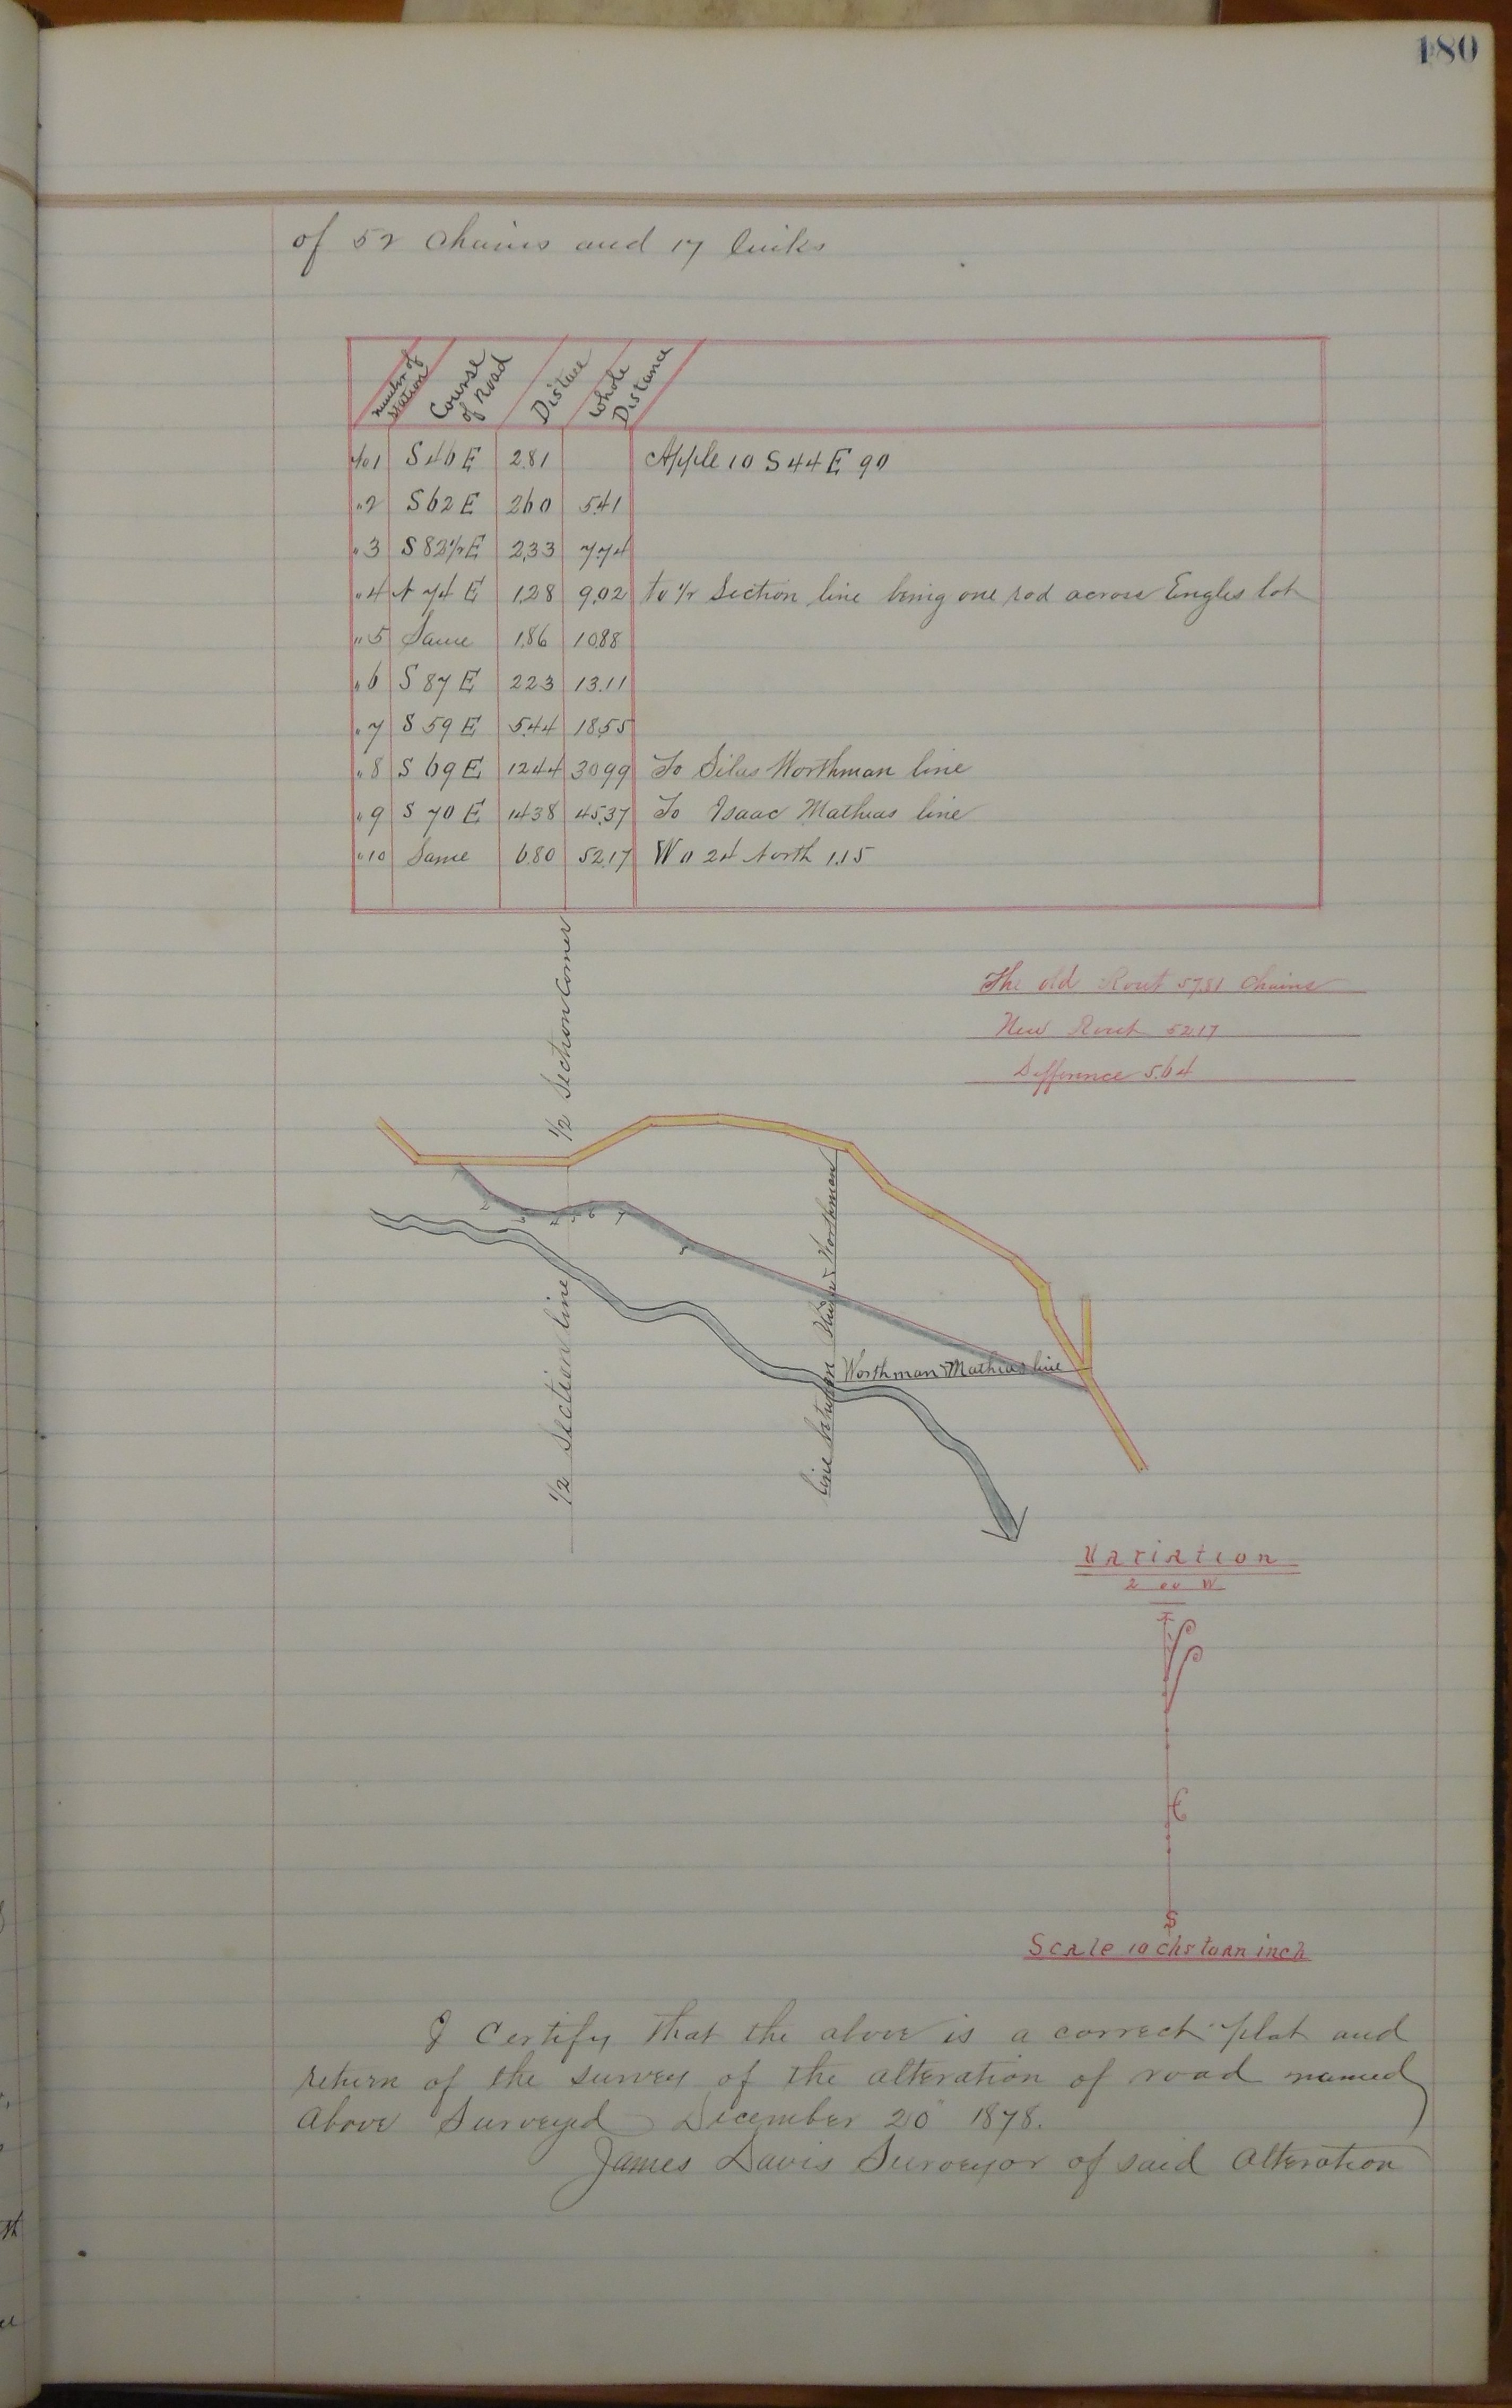 180
of 52 Chains and 17 links
Number of Station Course of Road Distace Whole Distance
No 1 S 46 E 2.81 Apple 10 S 44 E 90
" 2 S 62 E 260 5.41
" 3 S 82 1/2 E 2,33 7.74
" 4 N 74 E 1,28 9,02 to 1/2 Section line being one rod across Engles lot
" 5 Same 1,86 10.88
" 6 S 87 E 223 13.11
" 7 S 59 E 5.44 18.55
" 8 S 69 E 1244 3099 To Silas Worthman line
" 9 S 70 E 1438 45.37 To Isaac Mathias line
" 10 Same 6.80 52.17 W O 24 North 1.15
1/2 Section Corner
The old Rout 57.81 Chains
New Rout 52.17
Difference 5.64
2 3 4 5 6 7
1/2 Section line
line between & Worthman
Worthman & Mathias line
Variation
2 00 W
S
Scale 10 chs to an inch
I Certify that the above is a correct plat and
return of the survey of the alteration of road named
above Surveyed December 20" 1878.
James Davis Surveyor of said Alteration